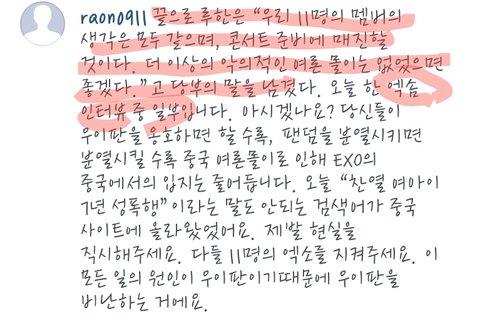 raono911 끝으로 루한은 "우리 11명의 멤버의
생각은 모두 같으며, 콘서트 준비에 매진할
것이다. 더 이상의 악의적인 여론 몰이는 없었으면
좋겠다." 고 당부의 말을 남겼다. 오늘 한 엑솜
인터뷰 중 일부입니다. 아시겠나요? 당신들이
우이판을 옹호하면 할 수록, 팬덤을 분열시키면
분열시킬 수록 중국 여론몰이로 인해 EXO의
중국에서의 입지는 줄어듭니다. 오늘 "찬열 여아이
7년 성폭행" 이라는 말도 안되는 검색어가 중국
사이트에 올라왔었어요. 제발 현실을
직시해주세요. 다들 11명의 엑소를 지켜주세요. 이
모든 일의 원인이 우이판이기때문에 우이판을
비난하는 거에요.